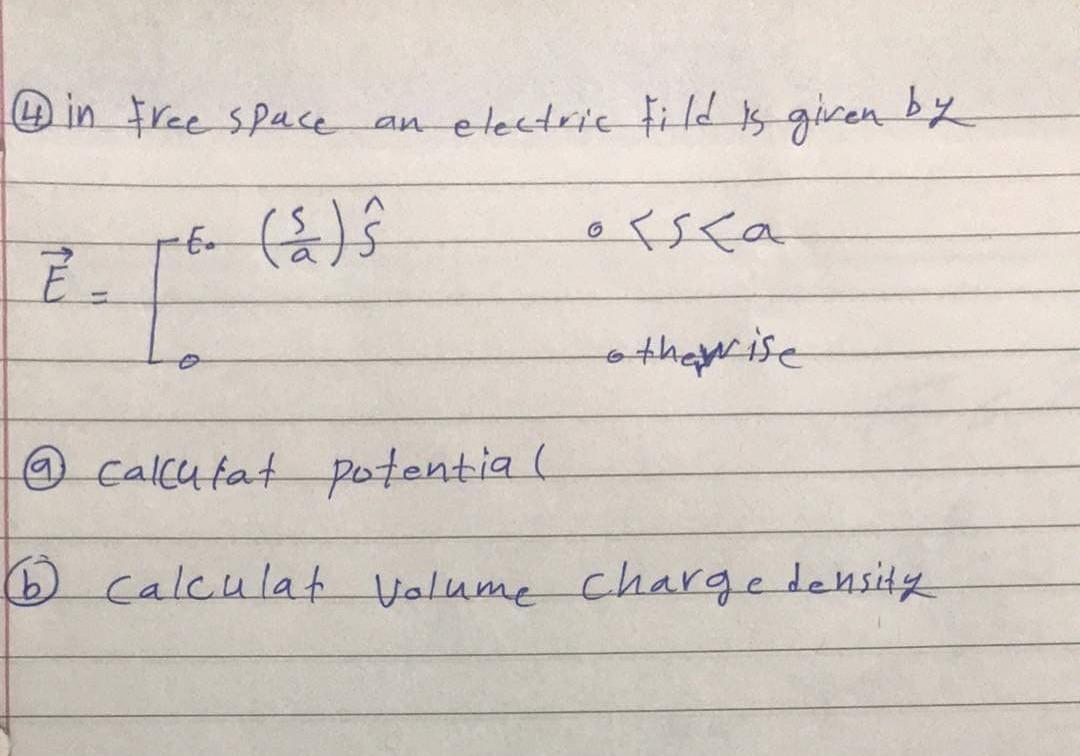 ④ in free space an electric fild is given by
E⃗ = [ E₀ (s/a) ŝ    0 < s < a
0    otherwise
ⓐ calculat potential
ⓑ calculat volume charge density